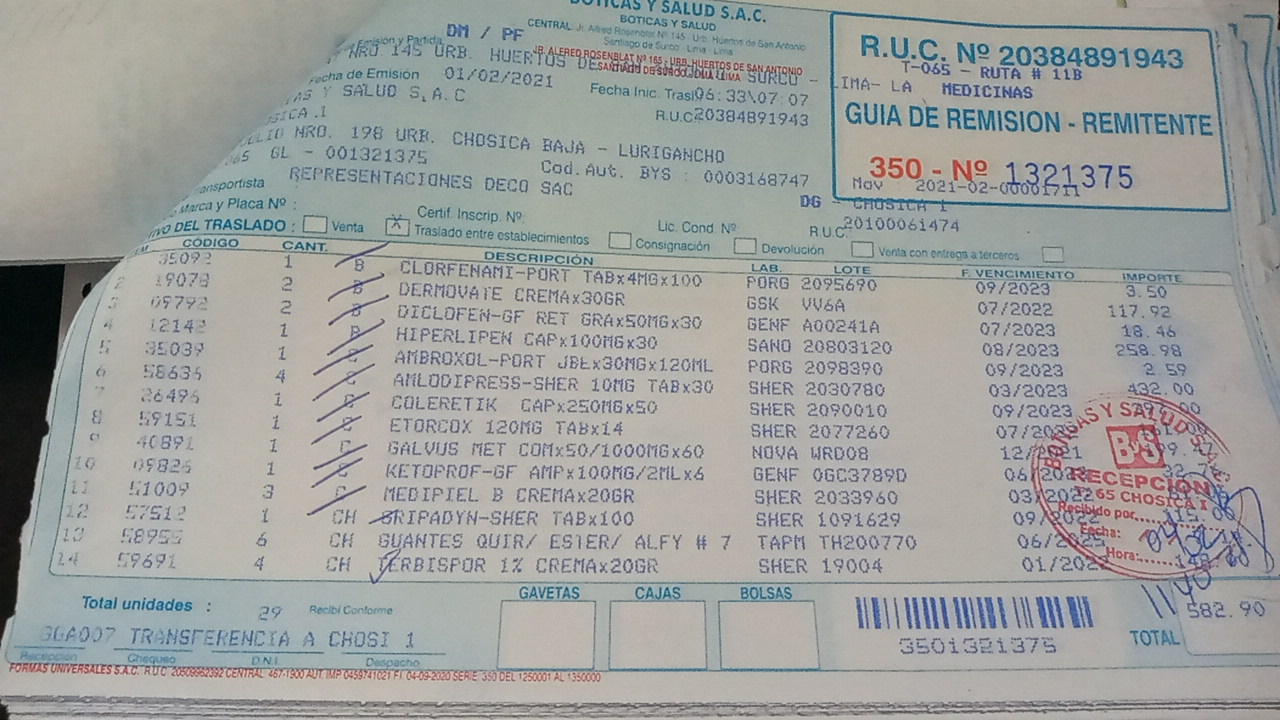 BOTICAS Y SALUD S.A.C.
BOTICAS Y SALUD
CENTRAL: Jr. Alfred Rosenblat Nº 145 Urb. Huertos de San Antonio
Santiago de Surco - Lima - Lima
Emisión y Partida DM / PF
JR. ALFRED ROSENBLAT Nº 165 - URB. HUERTOS DE SAN ANTONIO
SANTIAGO DE SURCO - LIMA - LIMA
NRO 145 URB. HUERTOS DE SURCO - LIMA- LA
Fecha de Emisión 01/02/2021 Fecha Inic. Trasl 06:33\07:07
AS Y SALUD S.A.C R.U.C. 20384891943
R.U.C. Nº 20384891943
T-065 - RUTA # 11B
MEDICINAS
GUIA DE REMISION - REMITENTE
350 - Nº 1321375
Mov 2021-02-00001711
SICA .1
JULIO NRO. 198 URB. CHOSICA BAJA - LURIGANCHO
065 GL - 001321375 Cod.Aut. BYS : 0003168747
REPRESENTACIONES DECO SAC DG - CHOSICA 1
ransportista R.U.C 20100061474
Marca y Placa Nº : Certif. Inscrip. Nº Lic. Cond. Nº
TIVO DEL TRASLADO : Venta X Traslado entre establecimientos Consignación Devolución Venta con entrega a terceros
CÓDIGO CANT. DESCRIPCIÓN LAB. LOTE F. VENCIMIENTO IMPORTE
35092 1 B CLORFENAMI-PORT TABx4MGx100 PORG 2095690 09/2023 3.50
2 19078 2 B DERMOVATE CREMAx30GR GSK VV6A 07/2022 117.92
3 09792 2 B DICLOFEN-GF RET GRAx50MGx30 GENF A00241A 07/2023 18.46
4 12142 1 B HIPERLIPEN CAPx100MGx30 SANO 20803120 08/2023 258.98
5 35039 1 AMBROXOL-PORT JBEx30MGx120ML PORG 2098390 09/2023 2.59
6 58636 4 AMLODIPRESS-SHER 10MG TABx30 SHER 2030780 03/2023 432.00
7 26496 1 COLERETIK CAPx250MGx50 SHER 2090010 09/2023
8 59151 1 ETORCOX 120MG TABx14 SHER 2077260
9 40891 1 GALVUS MET COMx50/1000MGx60 NOVA WRD08
10 09826 1 KETOPROF-GF AMPx100MG/2MLx6 GENF 0GC3789D
11 51009 3 MEDIPIEL B CREMAx20GR SHER 2033960 03/2022
12 57512 1 CH GRIPADYN-SHER TABx100 SHER 1091629 09/2022
13 58955 6 CH GUANTES QUIR/ ESTER/ ALFY # 7 TAPM TH200770
14 59691 4 CH TERBISPOR 1% CREMAx20GR SHER 19004 01/2022
BOTICAS Y SALUD S.A.C.
B&S
RECEPCION
65 CHOSICA 1
Recibido por
Fecha:
Hora:
Total unidades : 29 Recibí Conforme
GAVETAS CAJAS BOLSAS
3501321375
TOTAL 582.90
GGA007 TRANSFERENCIA A CHOSI 1
Recepción Chequeo D.N.I. Despacho
FORMAS UNIVERSALES S.A.C. R.U.C. 20509962392 CENTRAL: 467-1900 AUT. IMP 0459741021 F.I. 04-09-2020 SERIE: 350 DEL 1250001 AL 1350000